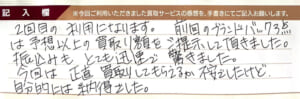 記入欄 ※今回ご利用いただきました買取サービスの感想を、手書きにてご記入お願いします。
2回目の利用になります。前回のブランドバック3点
は予想以上の買取り額をご提示して頂きました。
振込みも とても迅速で 驚きました。
今回は 正直 買取りしてもらえるか 不安でしたけど、
自分的には 納得でした。